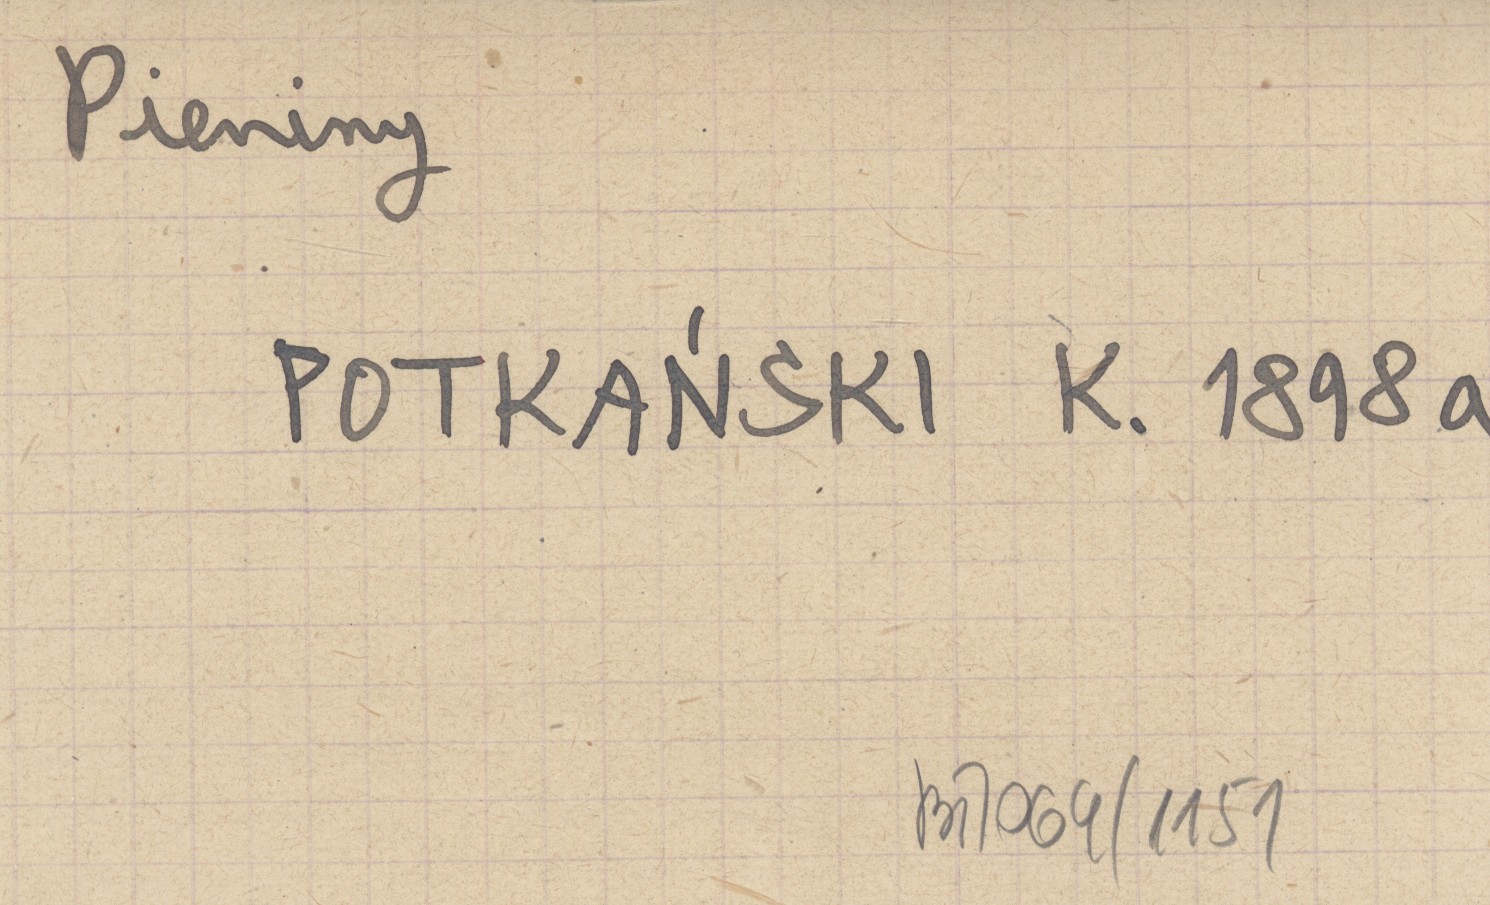 Pieniny
POTKAŃSKI K. 1898 a
/1151